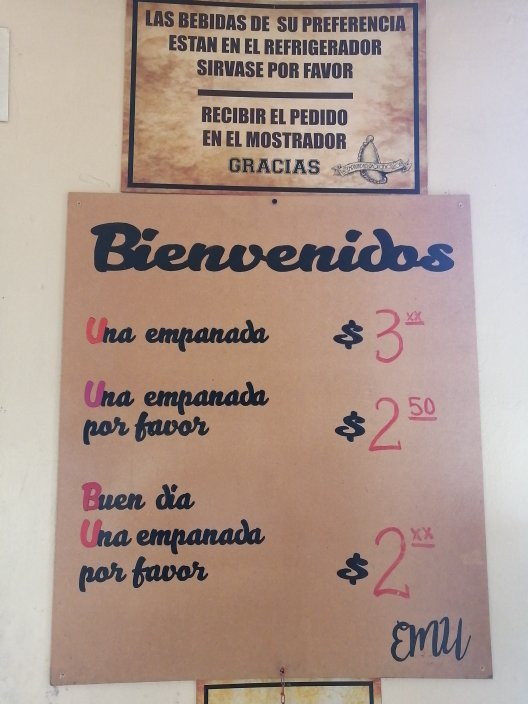 LAS BEBIDAS DE SU PREFERENCIA
ESTAN EN EL REFRIGERADOR
SIRVASE POR FAVOR
RECIBIR EL PEDIDO
EN EL MOSTRADOR
GRACIAS
Bienvenidos
Una empanada $ 3 xx
Una empanada
por favor $ 2 50
Buen día
Una empanada
por favor $ 2 xx
EMU